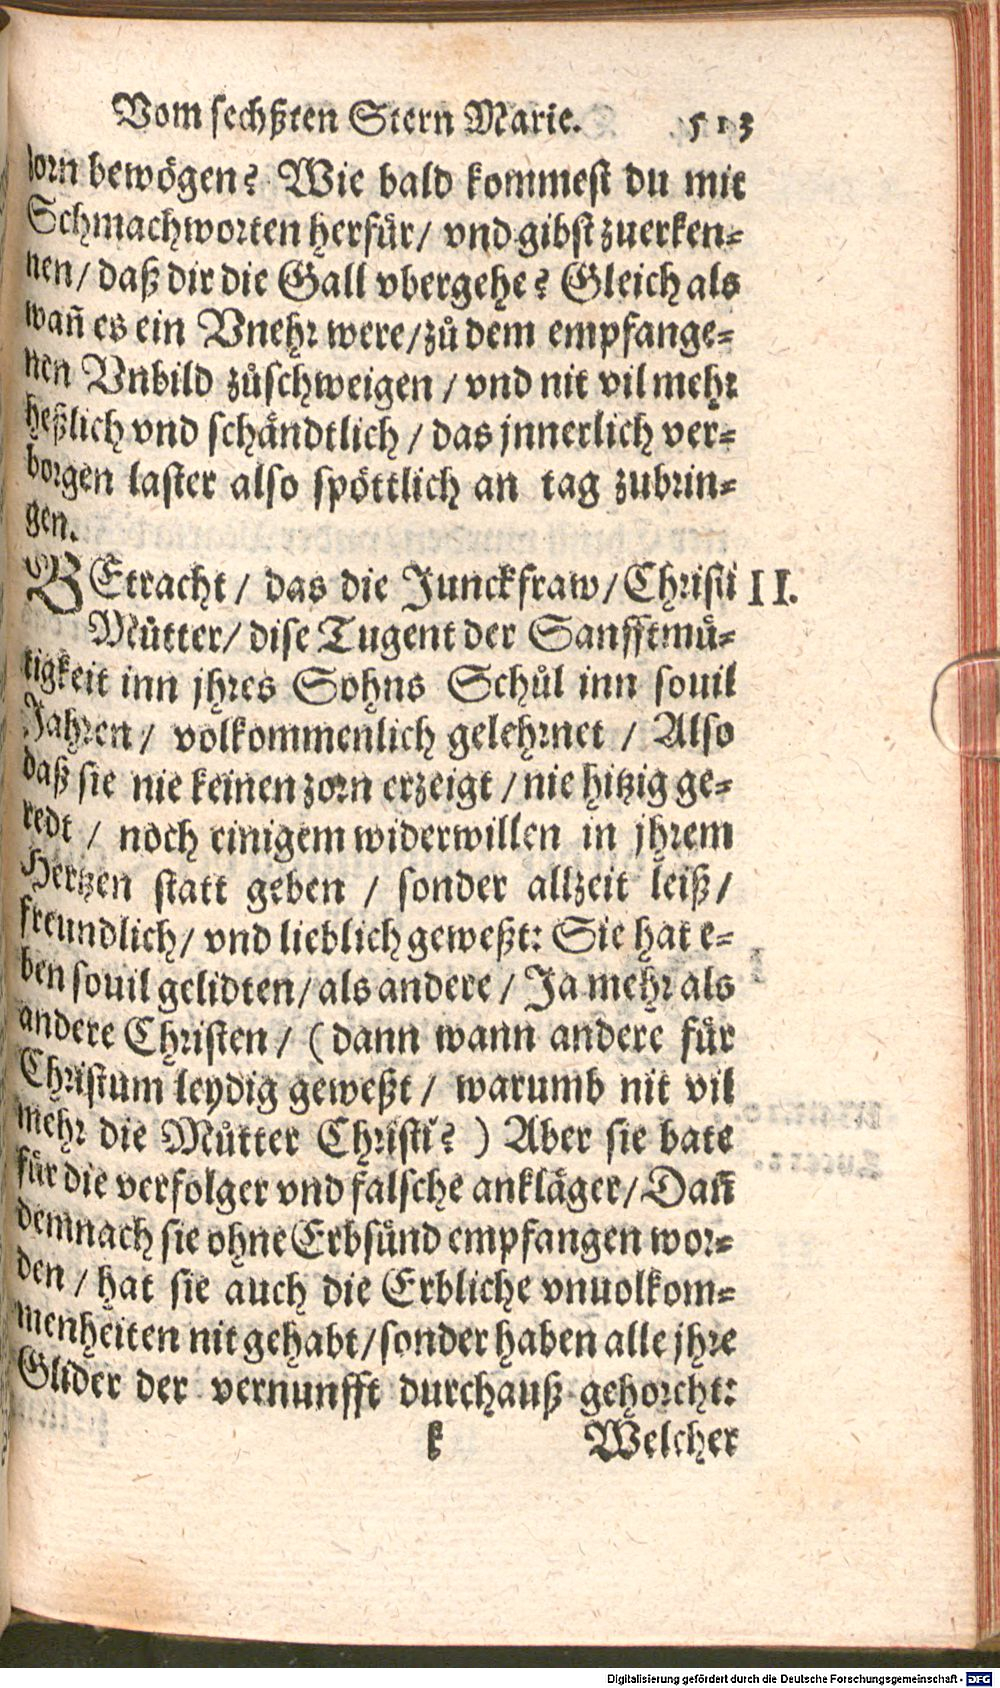 Vom sechßten Stern Marie. 513
zorn bewögen? Wie bald kommest du mit
Schmachworten herfür/ vnd gibst zuerken⸗
nen/ daß dir die Gall vbergehe? Gleich als
wañ es ein Vnehr were/zů dem empfange⸗
nen Vnbild zůschweigen / vnd nit vil mehr
heßlich vnd schändtlich / das jnnerlich ver⸗
borgen laster also spöttlich an tag zubrin⸗
gen.
BEtracht / das die Junckfraw/Christi II.
Můtter/ dise Tugent der Sanfftmü⸗
tigkeit inn jhres Sohns Schůl inn souil
Jahren / volkommenlich gelehrnet / Also
daß sie nie keinen zorn erzeigt / nie hitzig ge⸗
redt / noch einigem widerwillen in jhrem
Hertzen statt geben / sonder allzeit leiß/
freundlich/ vnd lieblich geweßt: Sie hat e⸗
ben souil gelidten/als andere / Ja mehr als
andere Christen / (dann wann andere für
Christum leydig geweßt / warumb nit vil
mehr die Můtter Christi? ) Aber sie bate
für die verfolger vnd falsche ankläger/Dañ
demnach sie ohne Erbsünd empfangen wor⸗
den / hat sie auch die Erbliche vnuolkom⸗
menheiten nit gehabt/sonder haben alle jhre
Glider der vernunfft durchauß gehorcht:
k Welcher
Digitalisierung gefördert durch die Deutsche Forschungsgemeinschaft - DFG